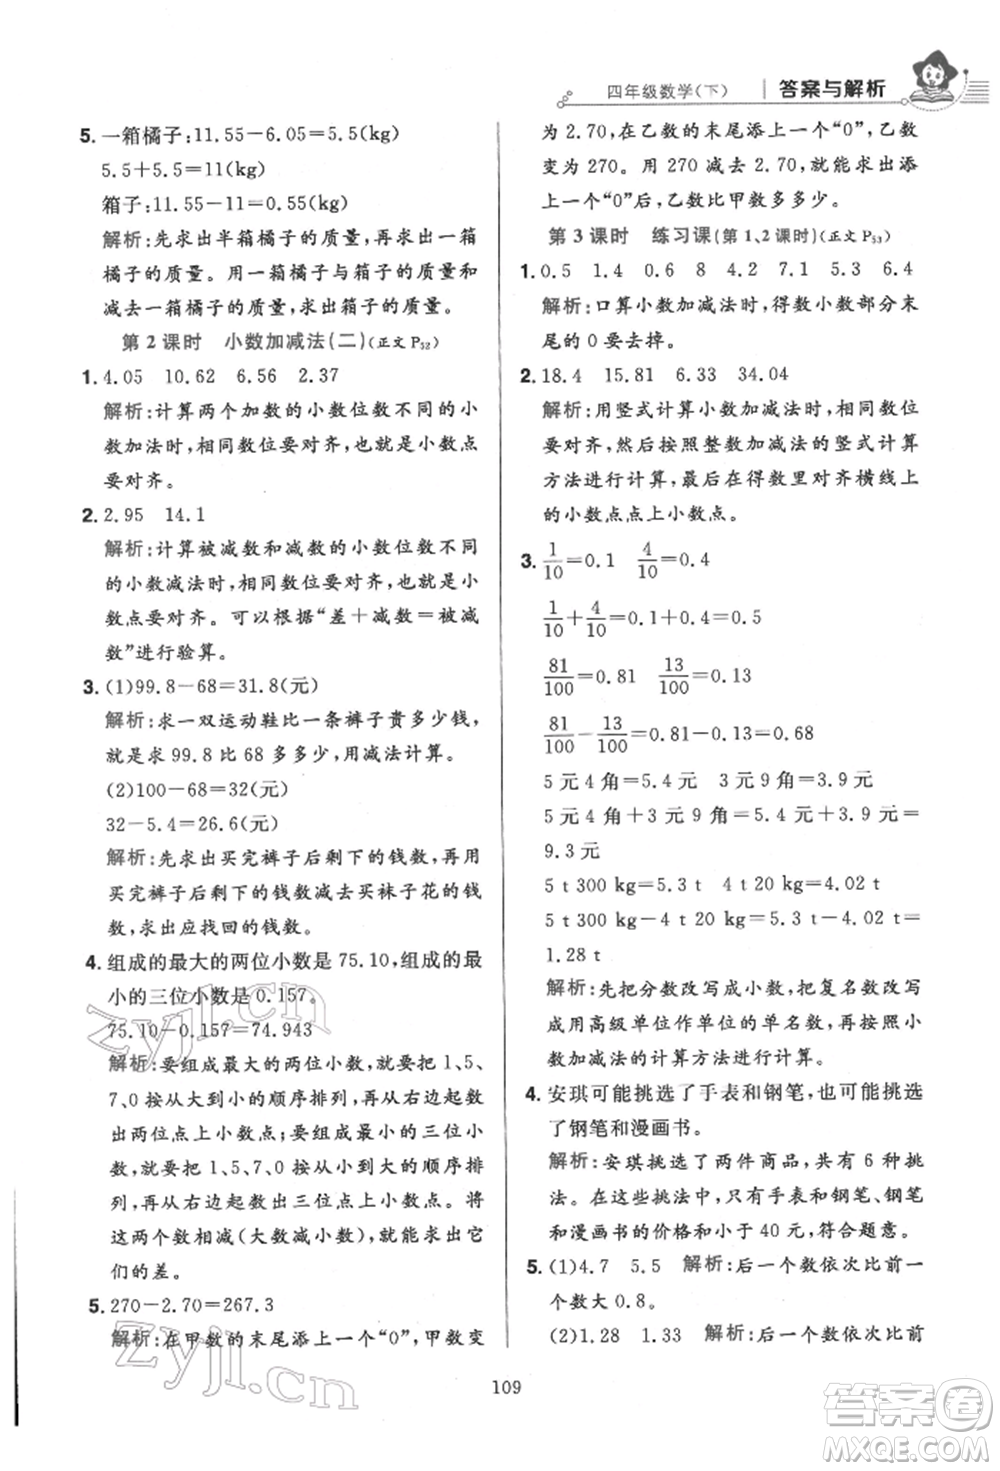 四年级数学(下) 答案与解析
5. 一箱橘子:11.55－6.05＝5.5(kg)
5.5＋5.5＝11(kg)
箱子:11.55－11＝0.55(kg)
解析:先求出半箱橘子的质量,再求一箱
橘子的质量。用一箱橘子与箱子的质量
减去一箱橘子的质量,求出箱子的质量。
第 2 课时 小数加减法(二)(正文 P52)
1. 4.05 10.62 6.56 2.37
解析:计算两个加数的小数位数不同的小
数加法时,相同数位要对齐,也就是小数点
要对齐。
2. 2.95 14.1
解析:计算被减数和减数的小数位数不同
的小数减法时,相同数位要对齐,也就是小
数点要对齐。可以根据“差＋减数＝被减
数”进行验算。
3. (1)99.8－68＝31.8(元)
解析:求一双运动鞋比一条裤子贵多少钱,
就是求 99.8 比 68 多多少,用减法计算。
(2)100－68＝32(元)
32－5.4＝26.6(元)
解析:先求出买完裤子后剩下的钱数,再用
买完裤子后剩下的钱数减去买袜子花的钱
数,求出应找回的钱数。
4. 组成的最大的两位小数是 75.10,组成的最
小的三位小数是 0.157。
75.10－0.157＝74.943
解析:要组成最大的两位小数,就要把 1、5、
7、0 按从大到小的顺序排列,再从右边起数
出两位点上小数点;要组成最小的三位小
数,就要把 1、5、7、0 按从小到大的顺序排
列,再从右边起数出三位点上小数点。将
这两个数相减(大数减小数),就能求出它
们的差。
5. 270－2.70＝267.3
解析:在甲数的末尾添上一个“0”,甲数变
为 2.70,在乙数的末尾添上一个“0”,乙数
变为 270。用 270 减去 2.70,就能求出添
上一个“0”后,乙数比甲数多多少。
第 3 课时 练习课(第 1、2 课时)(正文 P53)
1. 0.5 1.4 0.6 8 4.2 7.1 5.3 6.4
解析:口算小数加减法时,得数小数部分末
尾的 0 要去掉。
2. 18.4 15.81 6.33 34.04
解析:用竖式计算小数加减法时,相同数位
要对齐,然后按照整数加减法的竖式计算
方法进行计算,最后在得数里对齐横线上
的小数点点上小数点。
3. 1/10＝0.1 4/10＝0.4
1/10＋4/10＝0.1＋0.4＝0.5
81/100＝0.81 13/100＝0.13
81/100－13/100＝0.81－0.13＝0.68
5 元 4 角＝5.4 元 3 元 9 角＝3.9 元
5 元 4 角＋3 元 9 角＝5.4 元＋3.9 元＝
9.3 元
5 t 300 kg＝5.3 t 4 t 20 kg＝4.02 t
5 t 300 kg－4 t 20 kg＝5.3 t－4.02 t＝
1.28 t
解析:先把分数改写成小数,把复名数改写
成用高级单位作单位的单名数,再按照小
数加减法的计算方法进行计算。
4. 安琪可能挑选了手表和钢笔,也可能挑选
了钢笔和漫画书。
解析:安琪挑选了两件商品,共有 6 种挑
法。在这些挑法中,只有手表和钢笔、钢笔
和漫画书的价格和小于 40 元,符合题意。
5. (1)4.7 5.5 解析:后一个数依次比前一
个数大 0.8。
(2)1.28 1.33 解析:后一个数依次比前
109
zyjl.cn
zyjl.cn
答案圈
MXQE.COM